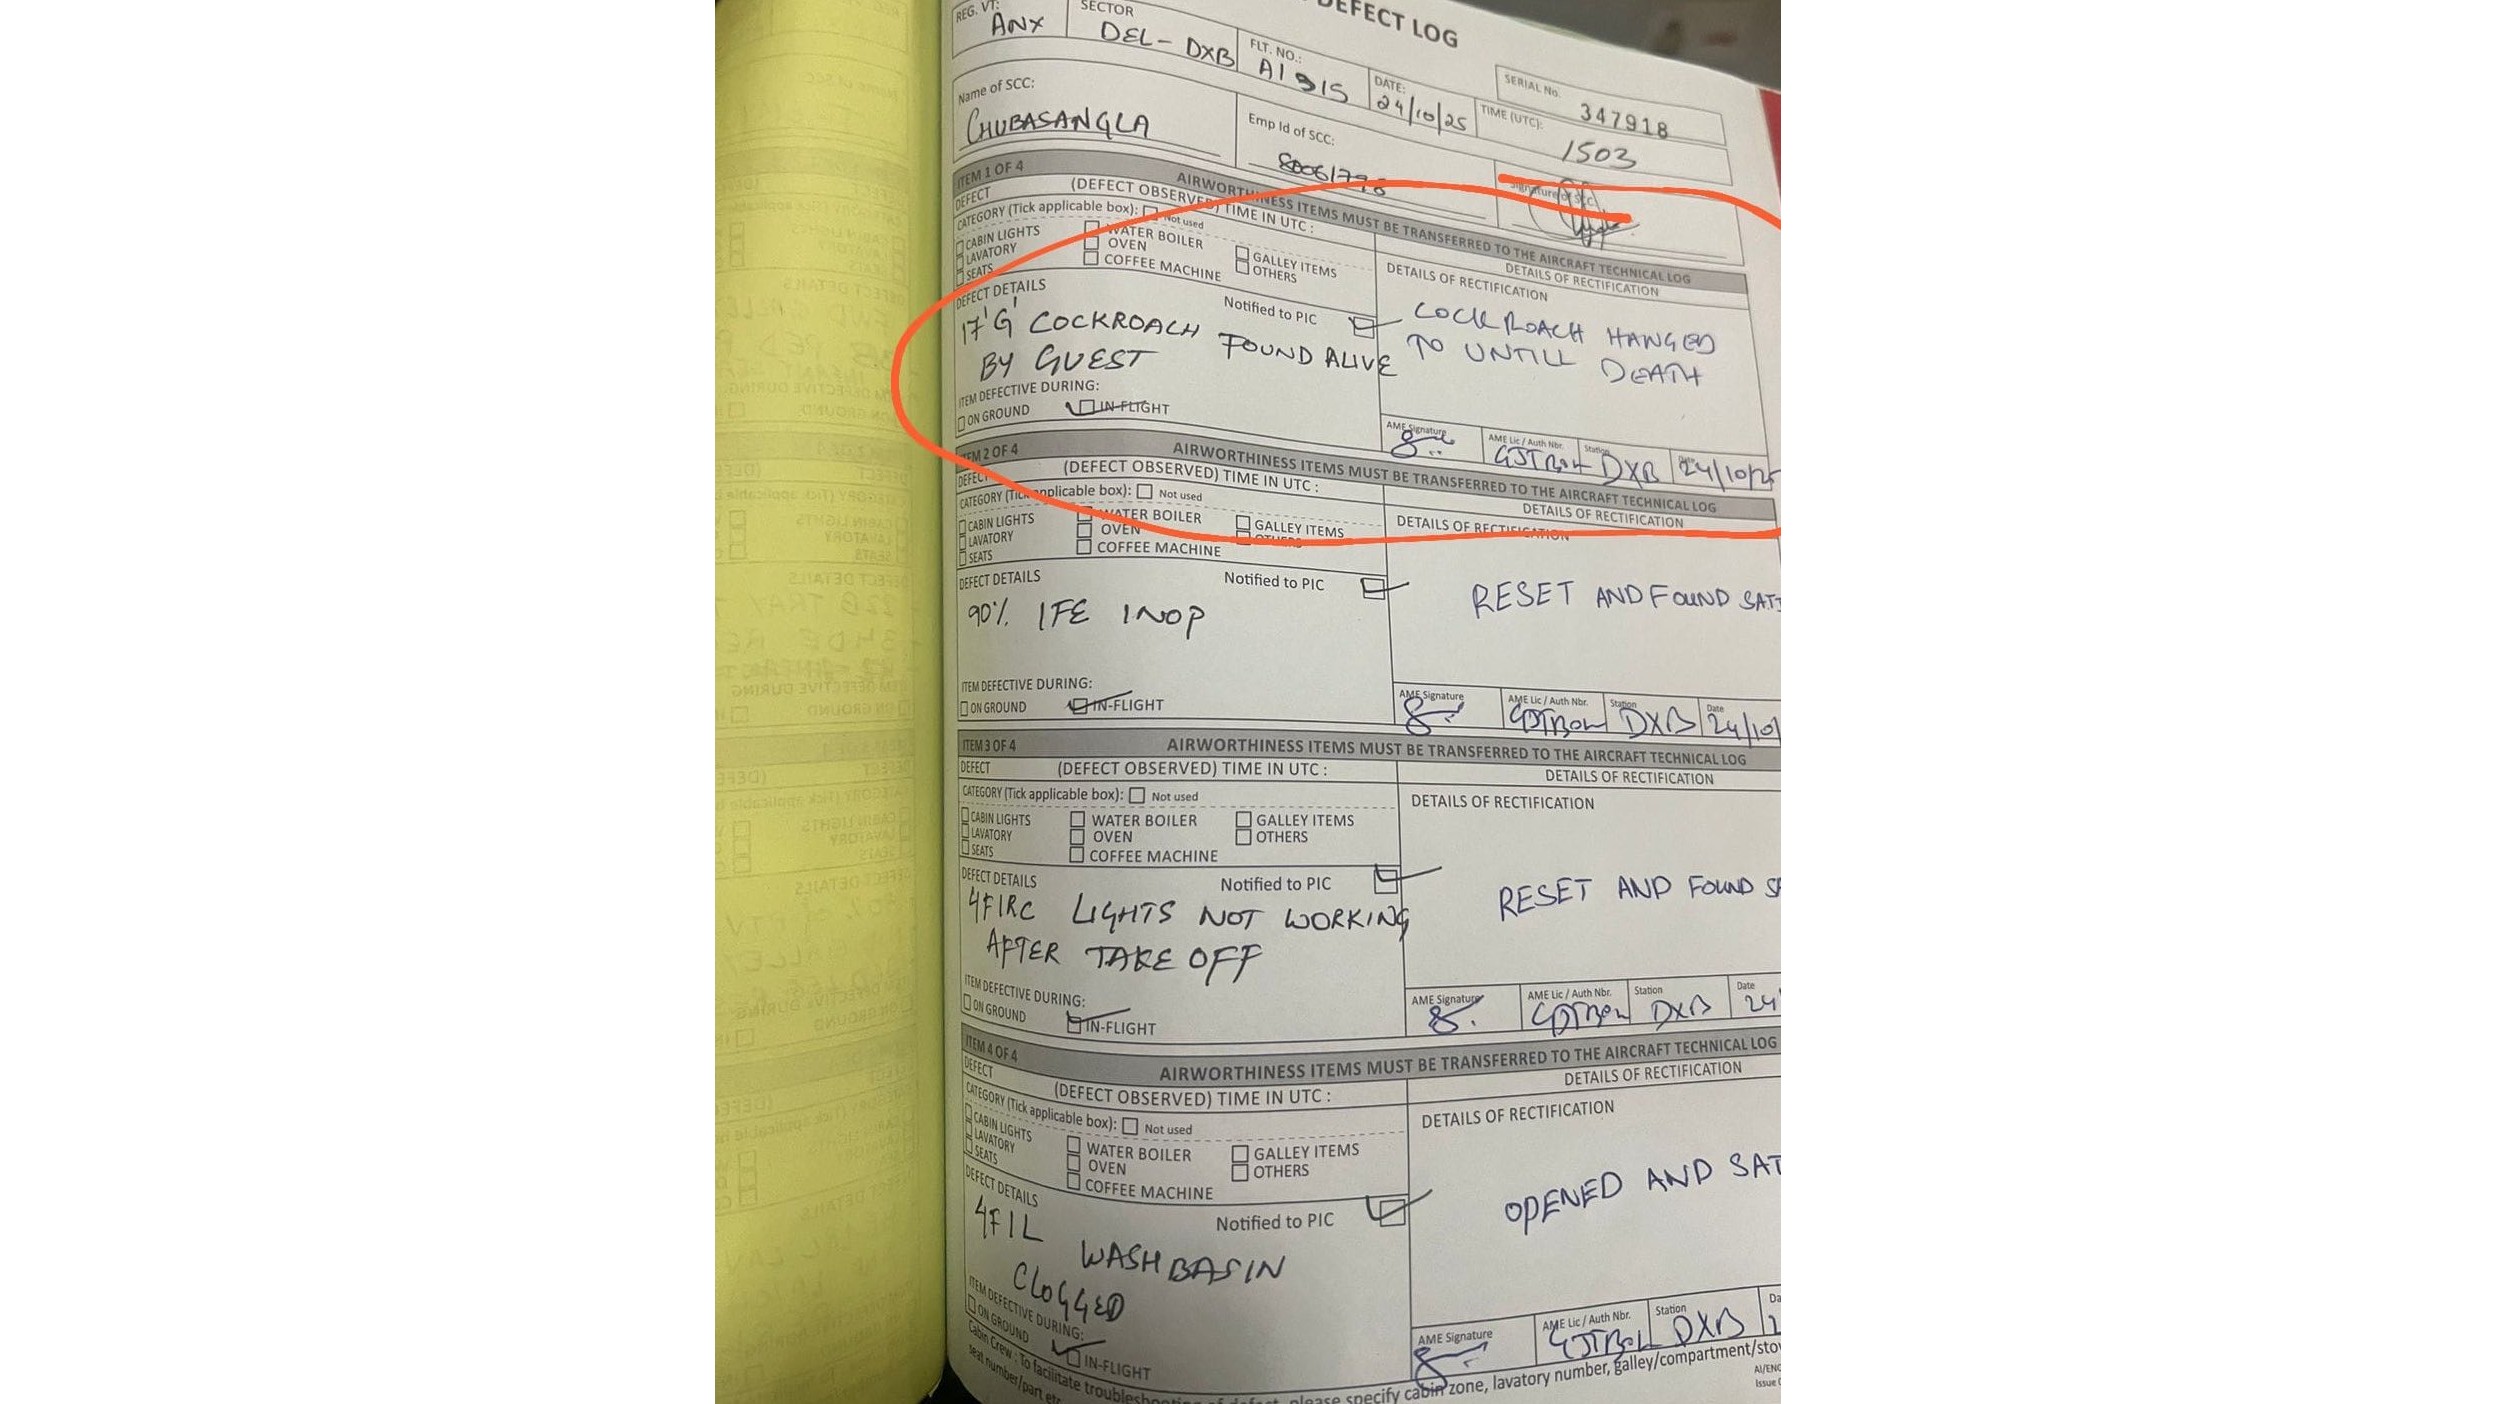 DEFECT LOG
REG. VT:
ANX
SECTOR
DEL - DXB
FLT. NO.:
AI 315
DATE:
24/10/25
SERIAL No.
347918
TIME (UTC):
1503
Name of SCC:
CHUBASANGLA
Emp Id of SCC:
Signature of SCC
ITEM 1 OF 4
AIRWORTHINESS ITEMS MUST BE TRANSFERRED TO THE AIRCRAFT TECHNICAL LOG
DEFECT
(DEFECT OBSERVED) TIME IN UTC :
DETAILS OF RECTIFICATION
CATEGORY (Tick applicable box): Not used
CABIN LIGHTS
LAVATORY
SEATS
WATER BOILER
OVEN
COFFEE MACHINE
GALLEY ITEMS
OTHERS
DEFECT DETAILS
Notified to PIC
17'G' COCKROACH FOUND ALIVE
BY GUEST
ITEM DEFECTIVE DURING:
ON GROUND
IN-FLIGHT
DETAILS OF RECTIFICATION
COCKROACH HANGED
TO UNTILL DEATH
AME Signature
AME Lic / Auth Nbr.
Station
DXB
Date
24/10/25
ITEM 2 OF 4
AIRWORTHINESS ITEMS MUST BE TRANSFERRED TO THE AIRCRAFT TECHNICAL LOG
DEFECT
(DEFECT OBSERVED) TIME IN UTC :
DETAILS OF RECTIFICATION
CATEGORY (Tick applicable box): Not used
CABIN LIGHTS
LAVATORY
SEATS
WATER BOILER
OVEN
COFFEE MACHINE
GALLEY ITEMS
OTHERS
DEFECT DETAILS
Notified to PIC
90% IFE INOP
ITEM DEFECTIVE DURING:
ON GROUND
IN-FLIGHT
DETAILS OF RECTIFICATION
RESET AND FOUND SAT
AME Signature
AME Lic / Auth Nbr.
Station
DXB
Date
24/10/
ITEM 3 OF 4
AIRWORTHINESS ITEMS MUST BE TRANSFERRED TO THE AIRCRAFT TECHNICAL LOG
DEFECT
(DEFECT OBSERVED) TIME IN UTC :
DETAILS OF RECTIFICATION
CATEGORY (Tick applicable box): Not used
CABIN LIGHTS
LAVATORY
SEATS
WATER BOILER
OVEN
COFFEE MACHINE
GALLEY ITEMS
OTHERS
DEFECT DETAILS
Notified to PIC
4FIRC LIGHTS NOT WORKING
AFTER TAKE OFF
ITEM DEFECTIVE DURING:
ON GROUND
IN-FLIGHT
DETAILS OF RECTIFICATION
RESET AND FOUND S
AME Signature
AME Lic / Auth Nbr.
Station
DXB
Date
24
ITEM 4 OF 4
AIRWORTHINESS ITEMS MUST BE TRANSFERRED TO THE AIRCRAFT TECHNICAL LOG
DEFECT
(DEFECT OBSERVED) TIME IN UTC :
DETAILS OF RECTIFICATION
CATEGORY (Tick applicable box): Not used
CABIN LIGHTS
LAVATORY
SEATS
WATER BOILER
OVEN
COFFEE MACHINE
GALLEY ITEMS
OTHERS
DEFECT DETAILS
Notified to PIC
4FIL WASH BASIN
CLOGGED
ITEM DEFECTIVE DURING:
ON GROUND
IN-FLIGHT
DETAILS OF RECTIFICATION
OPENED AND SAT
AME Signature
AME Lic / Auth Nbr.
Station
DXB
Da
Cabin Crew : To facilitate troubleshooting of defect, please specify cabin zone, lavatory number, galley/compartment/sto
seat number/part etc
AI/ENG
Issue